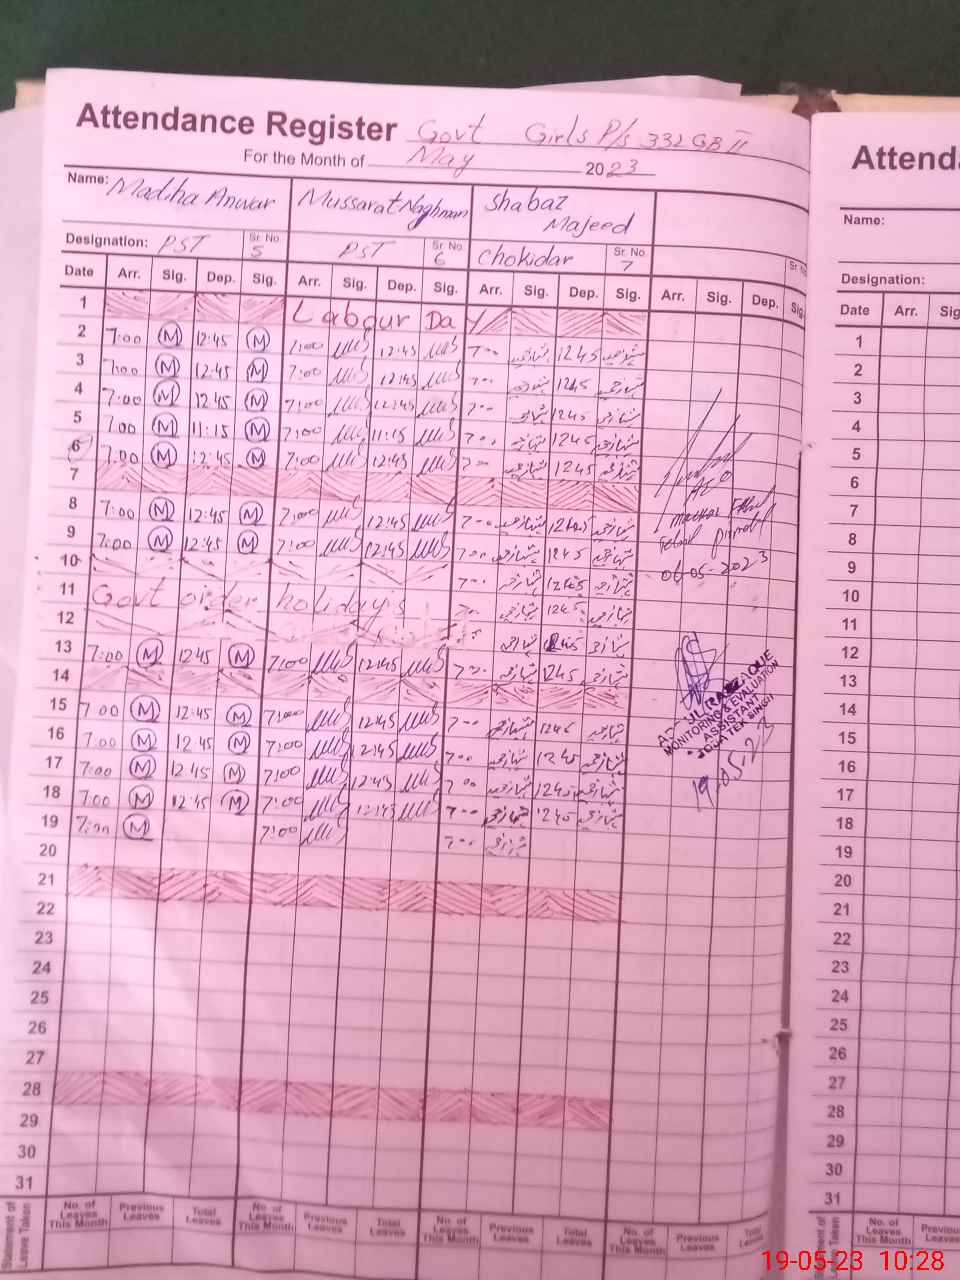 Attendance Register Govt Girls P/s 332 GB II
For the Month of May 2023
Name: Madiha Anwar Mussarat Naghman Shabaz Majeed
Designation: PST Sr. No. 5 PST Sr. No. 6 Chokidar Sr. No. 7 Sr. No.
Date Arr. Sig. Dep. Sig. Arr. Sig. Dep. Sig. Arr. Sig. Dep. Sig. Arr. Sig. Dep. Sig.
1 Labour Day
2 7:00 M 12:45 M 7:00 12:45 7 00 1245
3 7:00 M 12:45 M 7:00 12:45 7 00 1245
4 7:00 M 12 45 M 7:00 12:45 7 00 1245
5 7.00 M 11:15 M 7:00 11:15 7 00 1245
6 7.00 M 12:45 M 7:00 12:45 7 00 1245
7
8 7:00 M 12:45 M 7:00 12:45 7 00 1245
9 7:00 M 12:45 M 7:00 12:45 7 00 1245
10 7 00 1245
11 Govt order holidays 1245
12 1245
13 7:00 M 1245 M 7:00 12:45 7 00 1245
14
15 7 00 M 12:45 M 7:00 12:45 7 00 1245
16 7.00 M 12 45 M 7:00 12:45 7 00 1245
17 7:00 M 12 45 M 7:00 12:45 7 00 1245
18 7:00 M 12:45 M 7:00 12:45 7 00 1245
19 7:00 M 7:00 7 00
20
21
22
23
24
25
26
27
28
29
30
31
AEO
06-05-2023
MONITORING & EVALUATION
ASSISTANT
TEK SINGH
19.05.23
Statement of Leave Taken
No. of Leaves This Month Previous Leaves Total Leaves No. of Leaves This Month Previous Leaves Total Leaves No. of Leaves This Month Previous Leaves Total Leaves No. of Leaves This Month Previous Leaves Total Leaves
Attenda
Name:
Designation:
Date Arr. Sig
1
2
3
4
5
6
7
8
9
10
11
12
13
14
15
16
17
18
19
20
21
22
23
24
25
26
27
28
29
30
31
Statement of Leave Taken
No. of Leaves This Month Previous Leaves
19-05-23 10:28